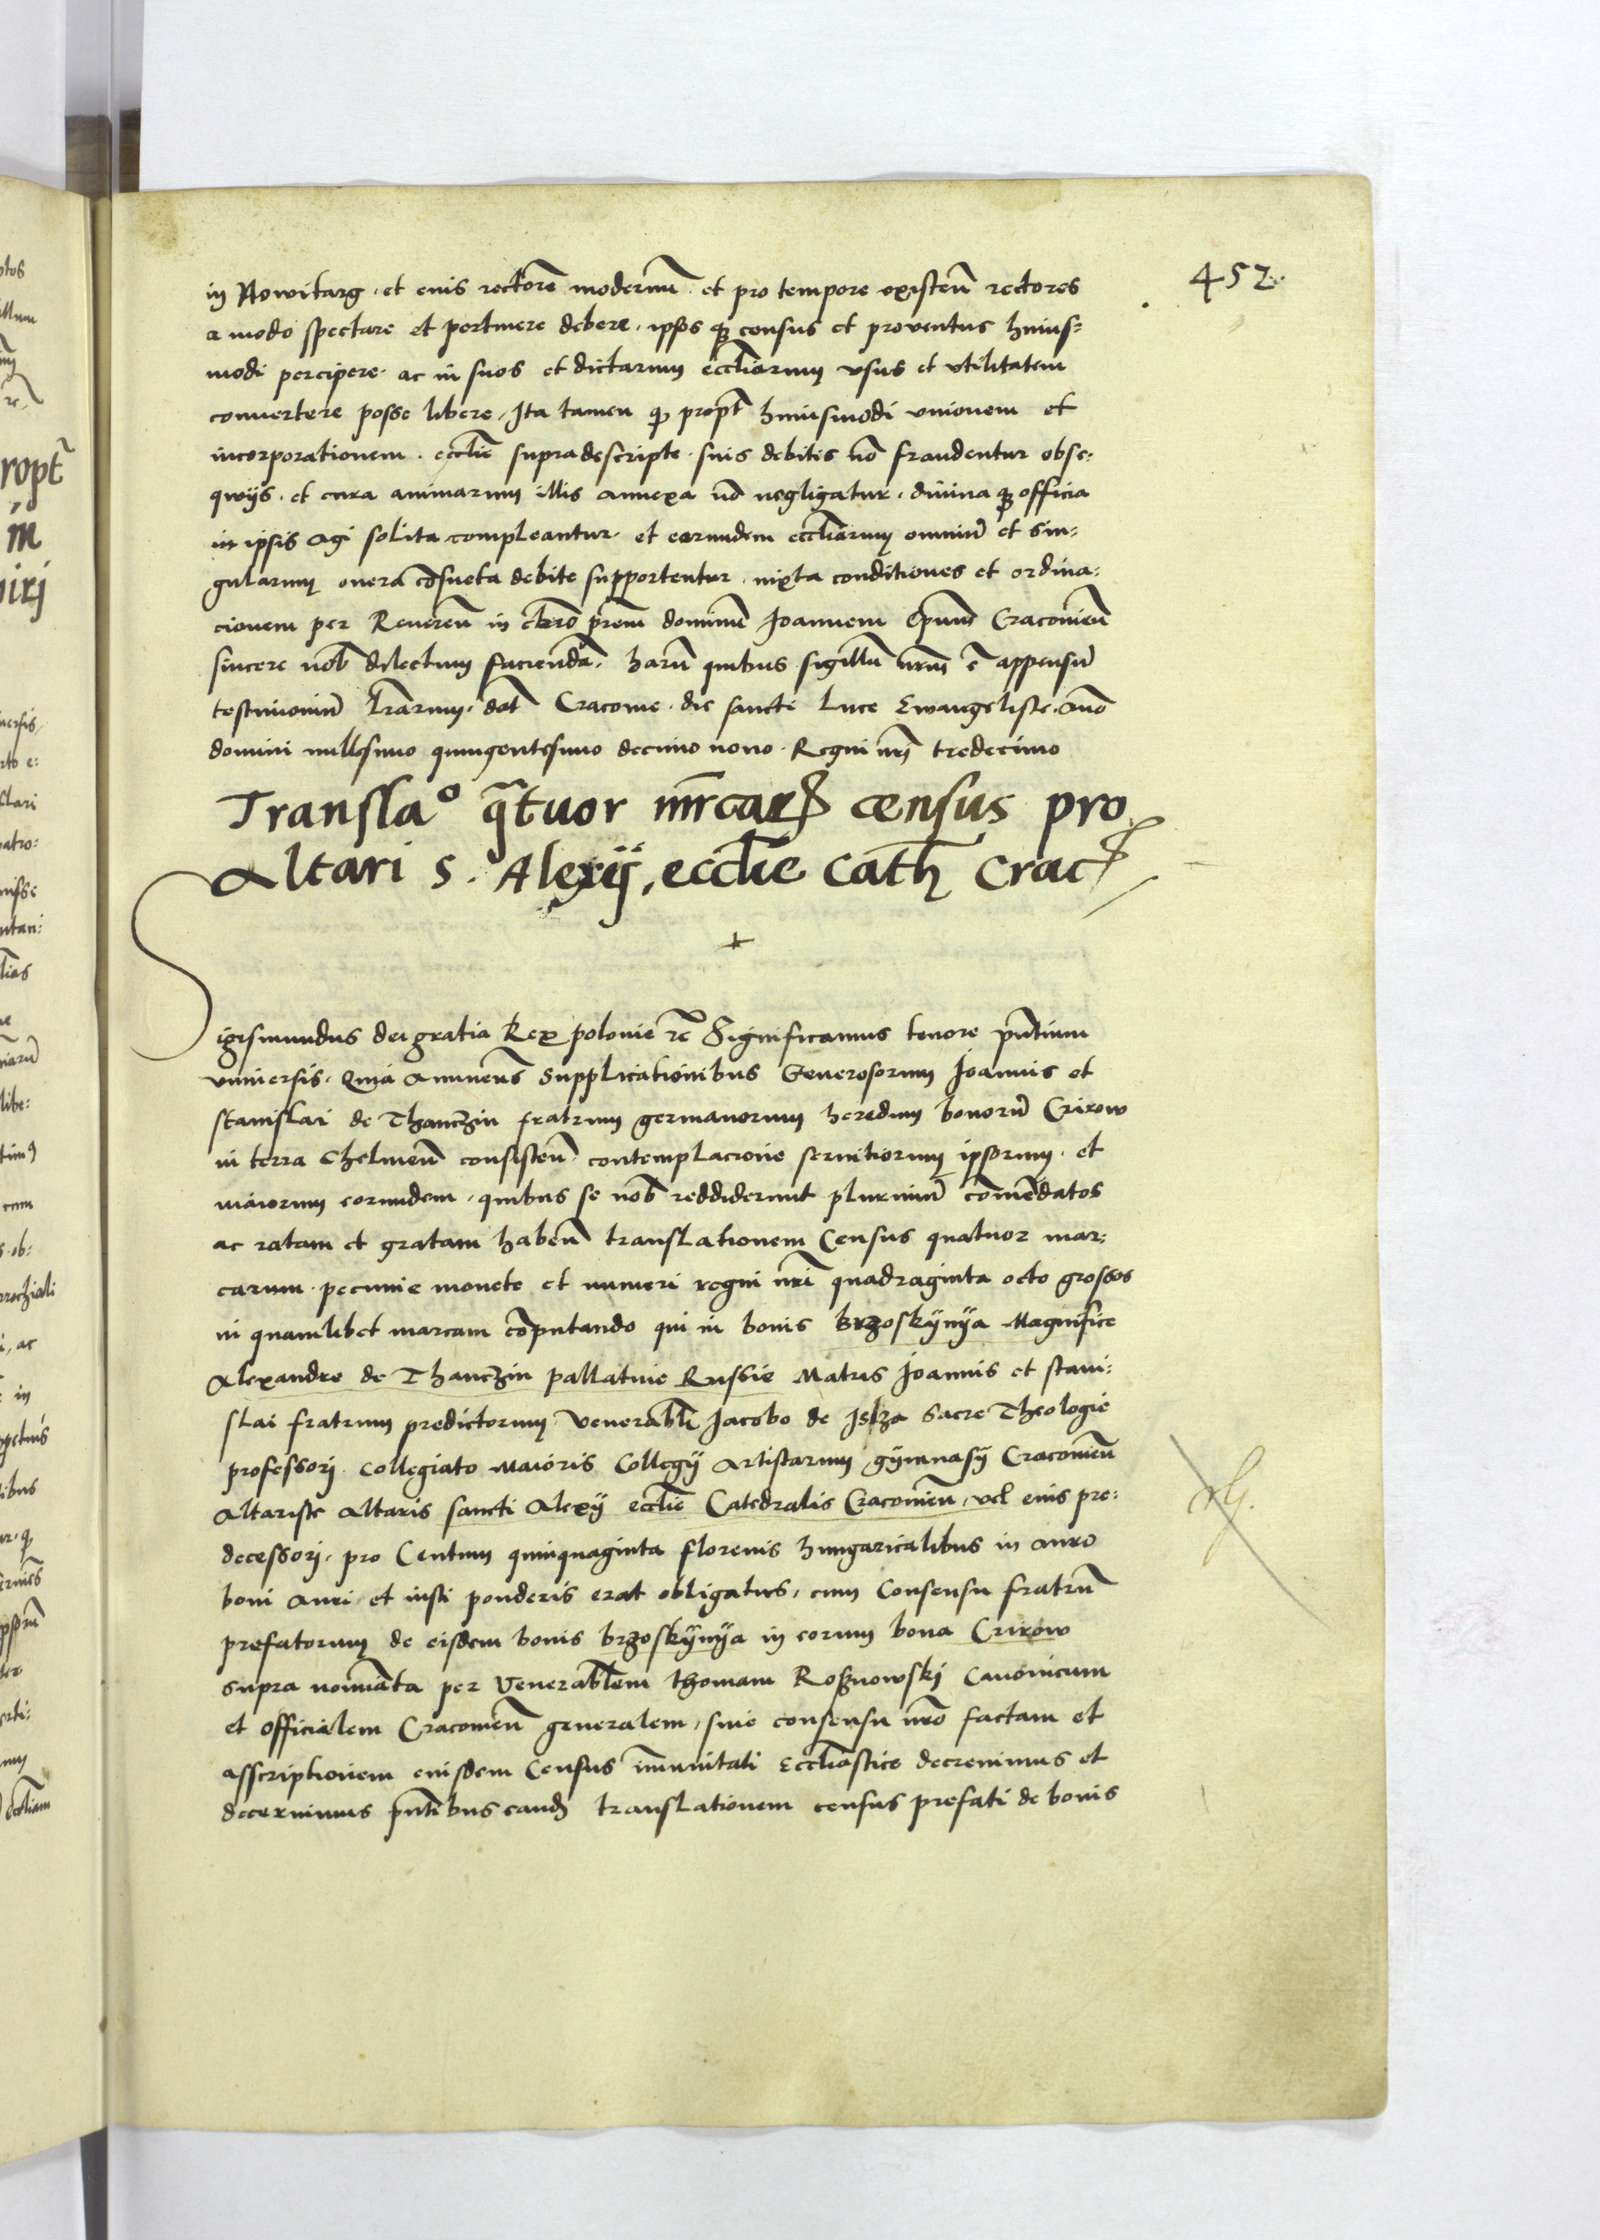 452.
in Nowitarg. et eius rectorē modernū. et pro tempore existen̄ rectores
a modo spectare et pertinere debere. ipsos qʒ census et proventus huius=
modi percipere. ac in suos et dictarum eccl̄iarum usus et utilitatem
convertere posse libere, Ita tamen qʒ propt̄ huiusmodi unionem et
incorporationem. eccl̄ie supradescripte. suis debitis nō fraudentur obse=
qwijs. et cura animarum illis annexa nō negligatur. divina qʒ officia
in ipsis agi solita compleantur. et earundem eccl̄iarum omniū et sin=
gularum onera cōsueta debite supportentur. iuxta conditiones et ordina=
cionem per Reveren̄ in chr̄o prēm dominū Joannem Ep̄um Cracovien̄
sincere nob̄ dilectum faciendā. harū quibus sigillū nr̄m ē appensū
testimoniū l̄rarum. dat̄ Cracovie. die sancti Luce Ewangeliste. Anō
domini millesimo quingentesimo decimo nono. Regni nr̄i tredecimo
Transla° q̄tuor mr̄carꝝ census pro
Altari S. Alexij, eccl̄ie Cath̄ Crac̄
Sigismundus dei gratia Rex polonie rc̄ Significamus tenore pn̄tium
universis. Quia Annuen̄s supplicationibus Generosorum Joannis et
stanislai de Thanczin fratrum germanorum heredum bonorū Crirow
in terra Chelmen̄ consisten̄. contemplacione servitiorum ipsorum. et
maiorum eorundem. quibus se nob̄ reddiderunt plurimū comēdatos
ac ratam et gratam haben̄ translationem Census quatuor mar=
carum. pecunie monete et numeri regni nr̄i quadraginta octo grossos
in quamlibet marcam cōputando qui in bonis Brzoskÿnÿa Magnifice
Alexandre de Thanczin pallatinie Russie Matris Joannis et stani=
slai fratrum predictorum Venerabl̄i Jacobo de Islza sacre Theologie
professori. Collegiato Maioris Collegÿ Artistarum gÿmnasÿ Cracovien̄
Altariste Altaris sancti Alexÿ eccl̄ie Catedralis Cracovien̄, vel eius pre=
decessori. pro Centum quinquaginta florenis hungaricalibus in auro
boni Auri et iusti ponderis erat obligatus, cum Consensu fratrū
prefatorum de eisdem bonis brzoskÿnÿa in eorum bona Crirow
supra nominata per Venerabl̄em thomam Roßnowski Canonicum
et officialem Cracovien̄ generalem, sine consensu nr̄o factam et
asscriptionem eiusdem Census immunitati Eccl̄iastice decrevimus et
decernimus pn̄tibus eandʒ translationem census prefati de bonis